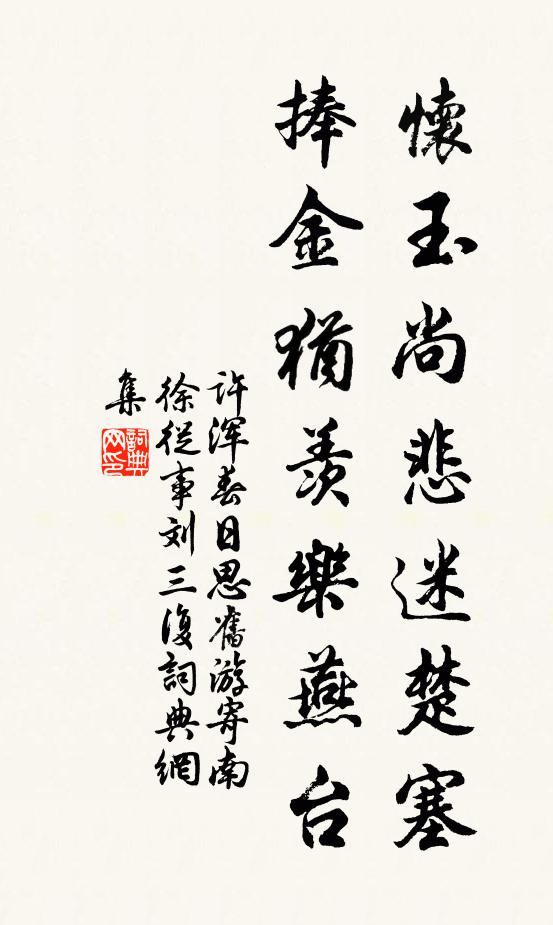 懷玉尚悲迷楚塞
捧金猶羨樂燕台
许浑春日思舊游寄南
徐從事刘三復詞典網
集
詞典
网印